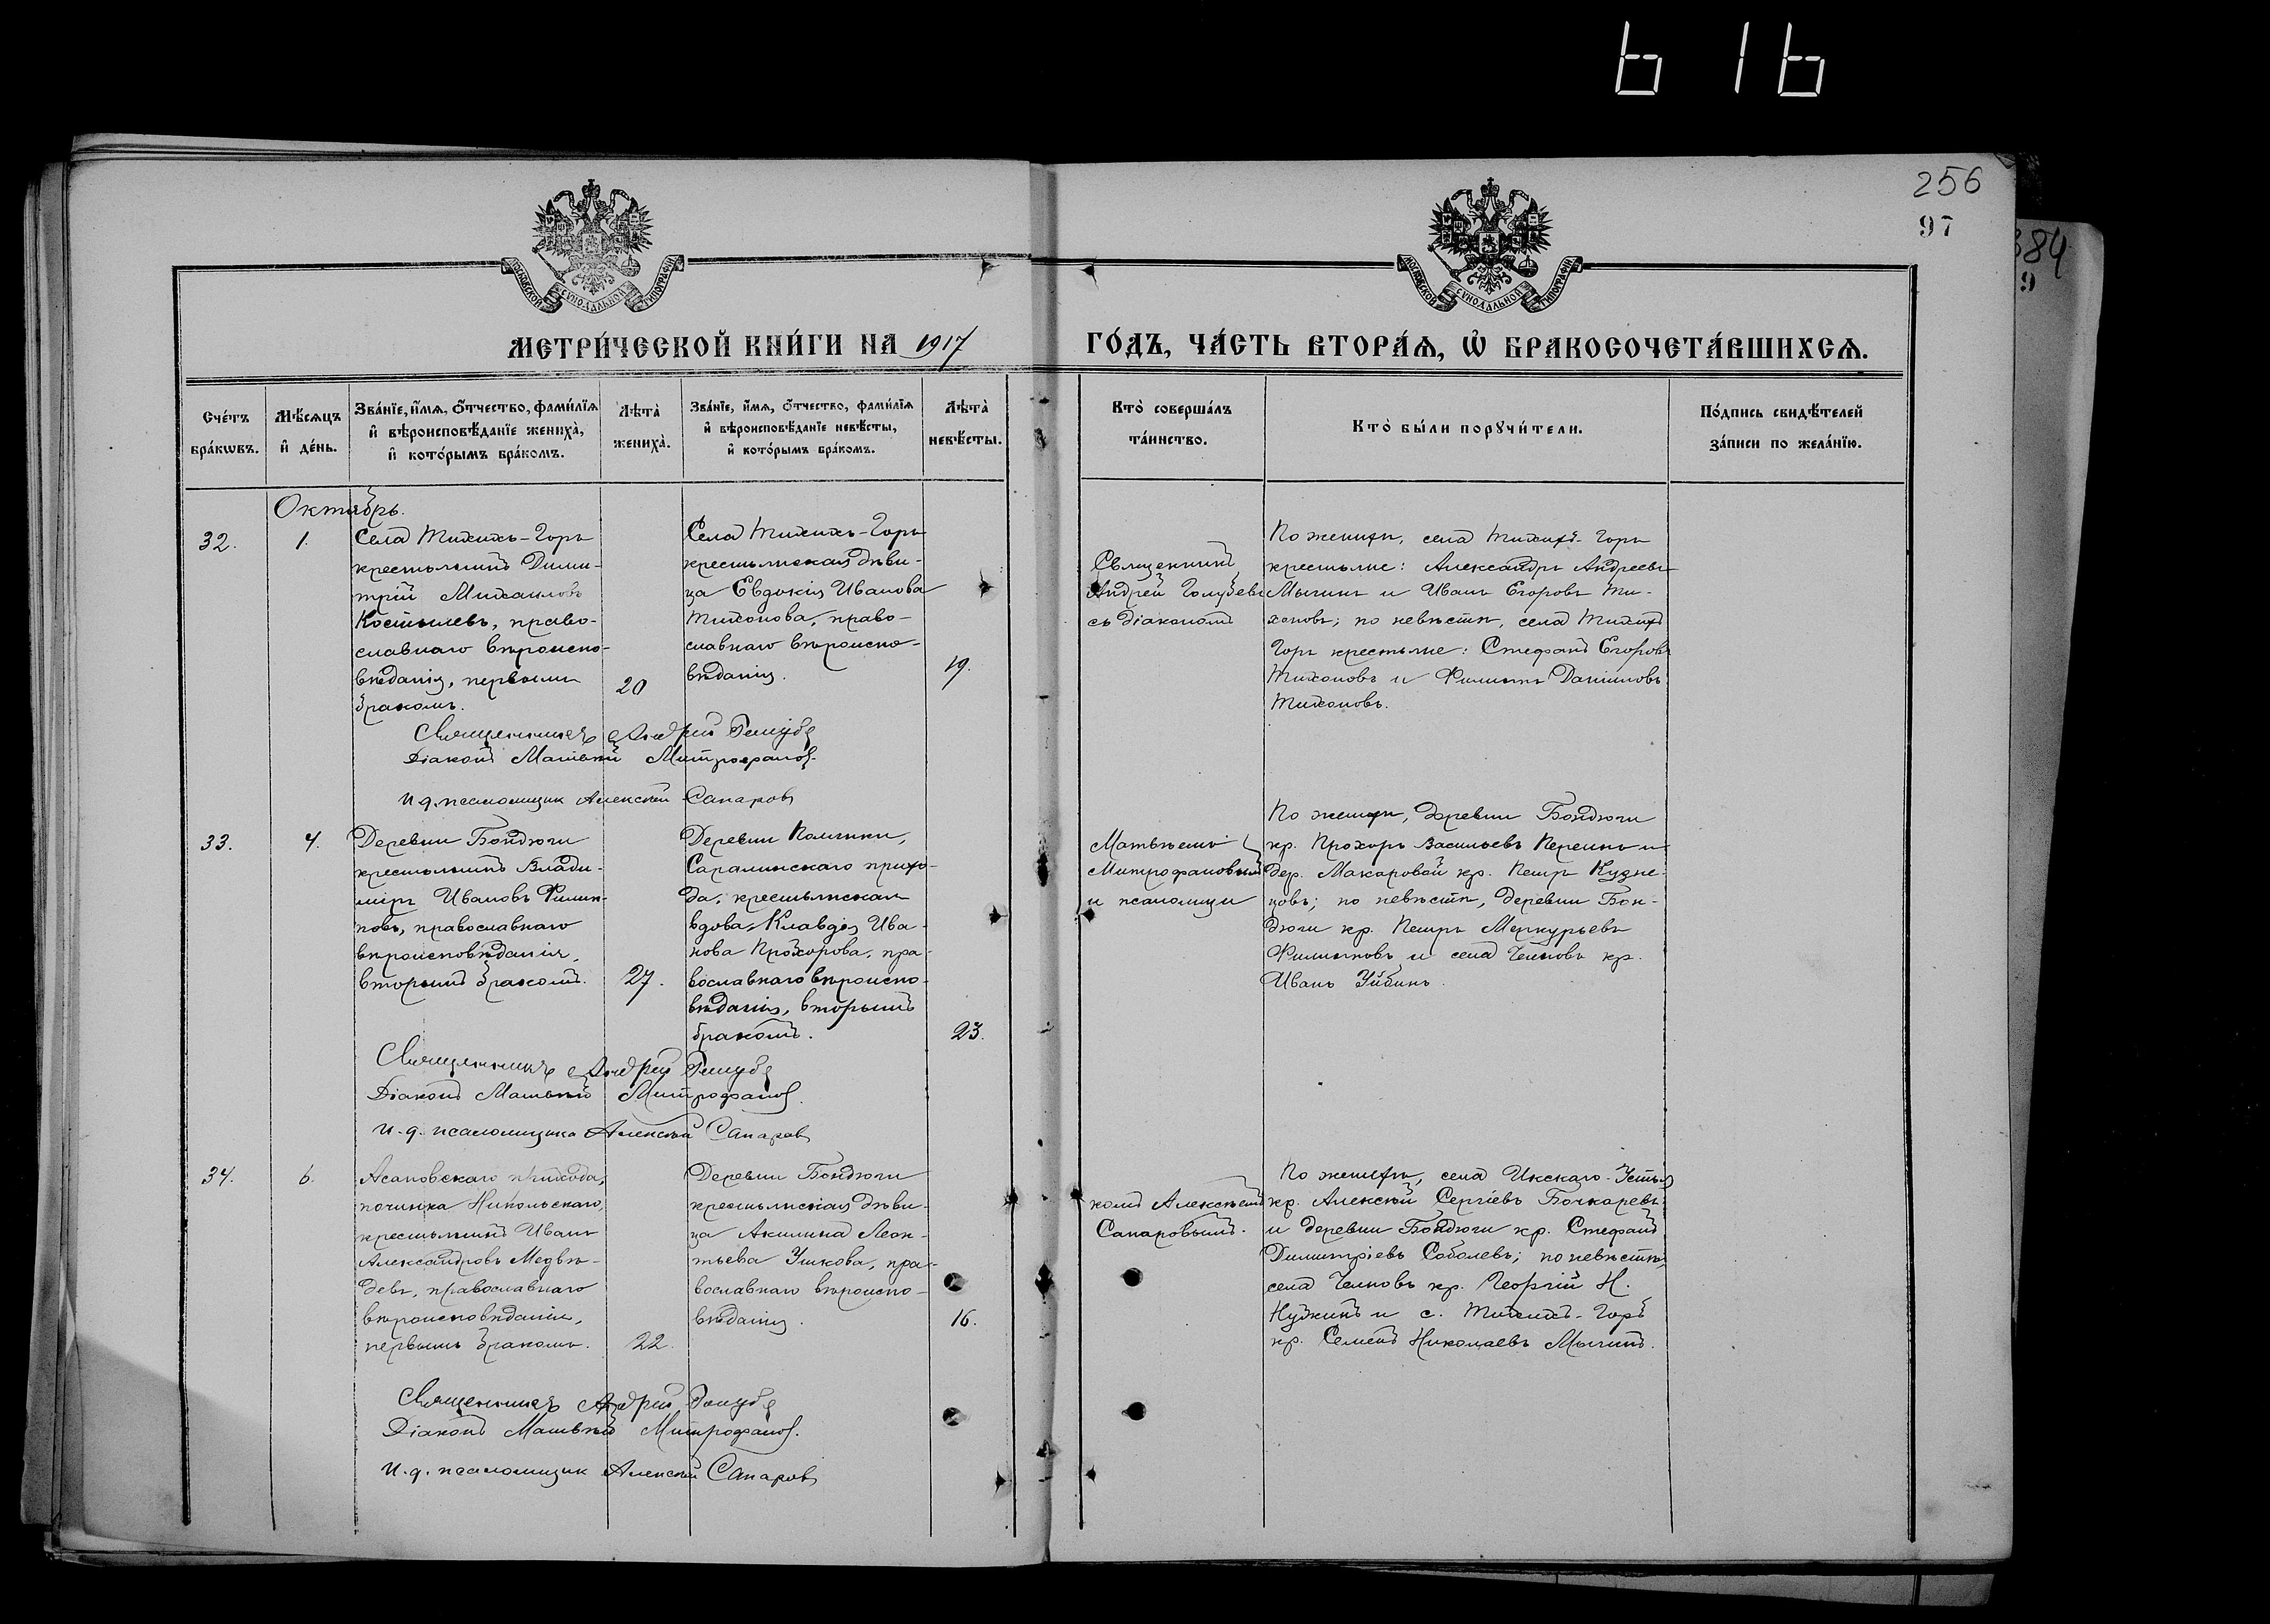 616
256
97
384
9
МОСКОВСКОЙ СѴНОДАЛЬНОЙ ТИПОГРАФІИ
МОСКОВСКОЙ СѴНОДАЛЬНОЙ ТИПОГРАФІИ
МЕТРИ́ЧЕСКОЙ КНИ́ГИ НА 1917 ГО́ДЪ, ЧА́СТЬ ВТОРА́Ѧ, Ѡ҆ БРАКОСОЧЕТА́ВШИХСѦ.
Сче́тъ бра́кѡвъ.
Мѣ́сѧцъ и҆ де́нь.
Зва́нїе, и҆́мѧ, ѻ҆́тчество, фами́лїѧ
и҆ вѣроисповѣ́данїе жениха̀,
и҆ кото́рымъ бра́комъ.
Лѣта̀ жениха̀.
Зва́нїе, и҆́мѧ, ѻ҆́тчество, фами́лїѧ
и҆ вѣроисповѣ́данїе невѣ́сты,
и҆ кото́рымъ бра́комъ.
Лѣта̀ невѣ́сты.
Кто̀ соверша́лъ та́инство.
Кто̀ бы́ли порꙋчи́тели.
По́дпись свидѣ́телей за́писи по жела́нїю.
Октябрь.
32.
1.
Села Тихихъ-Горъ
крестьянинъ Дими-
трій Михаиловъ
Костылевъ, право-
славнаго вѣроиспо-
вѣданія, первымъ
бракомъ.
20
Села Тихихъ-Горъ
крестьянская дѣви-
ца Евдокія Иванова
Тихонова, право-
славнаго вѣроиспо-
вѣданія.
19.
Священникъ
Андрей Голубевъ
съ діакономъ
По женихѣ, села Тихихъ-Горъ
крестьяне: Александръ Андреевъ
Мычинъ и Иванъ Егоровъ Ти-
хоновъ; по невѣстѣ, села Тихихъ
Горъ крестьяне: Стефанъ Егоровъ
Тихоновъ и Филиппъ Даниловъ
Тихоновъ.
Священникъ Андрей Голубе
Діаконъ Матвѣй Митрофанов
И. д. псаломщик Алексѣй Сапаровъ
33.
4.
Деревни Бондюги
крестьянинъ Влади-
міръ Ивановъ Филип-
повъ, православнаго
вѣроисповѣданія,
вторымъ бракомъ.
27.
Деревни
Саралинскаго прихо-
да, крестьянская
вдова Клавдія Ива-
нова Прохорова, пра-
вославнаго вѣроиспо-
вѣданія, вторымъ
бракомъ.
23.
Матвѣемъ
Митрофановымъ
и псаломщи
По женихѣ, деревни Бондюги
кр. Прохоръ Васильевъ и
дер. Макаровой кр. Петръ Кузне-
цовъ; по невѣстѣ, деревни Бон-
дюги кр. Петръ Меркурьевъ
Филипповъ и села Челновъ кр.
Иванъ
Священникъ Андрей Голубе
Діаконъ Матвѣй Митрофанов.
И. д. псаломщика Алексѣй Сапаровъ
34.
6.
Асановскаго прихода,
починка Никольскаго,
крестьянинъ Иванъ
Александровъ Медвѣ-
девъ, православнаго
вѣроисповѣданія,
первымъ бракомъ.
22.
Деревни Бондюги
крестьянская дѣви-
ца Акилина Леон-
тьева Ушкова, пра-
вославнаго вѣроиспо-
вѣданія.
16.
комъ Алексѣемъ
Сапаровымъ.
По женихѣ, села Икскаго-Устья
кр. Алексѣй Сергіевъ Бочкаревъ
и деревни Бондюги кр. Стефанъ
Димитріевъ Соболевъ; по невѣстѣ,
села Челновъ кр. Георгій Н.
и с. Тихихъ-Горъ
кр. Семенъ Николаевъ Мычинъ.
Священникъ Андрей Голубе
Діаконъ Матвѣй Митрофанов.
И. д. псаломщик Алексѣй Сапаровъ